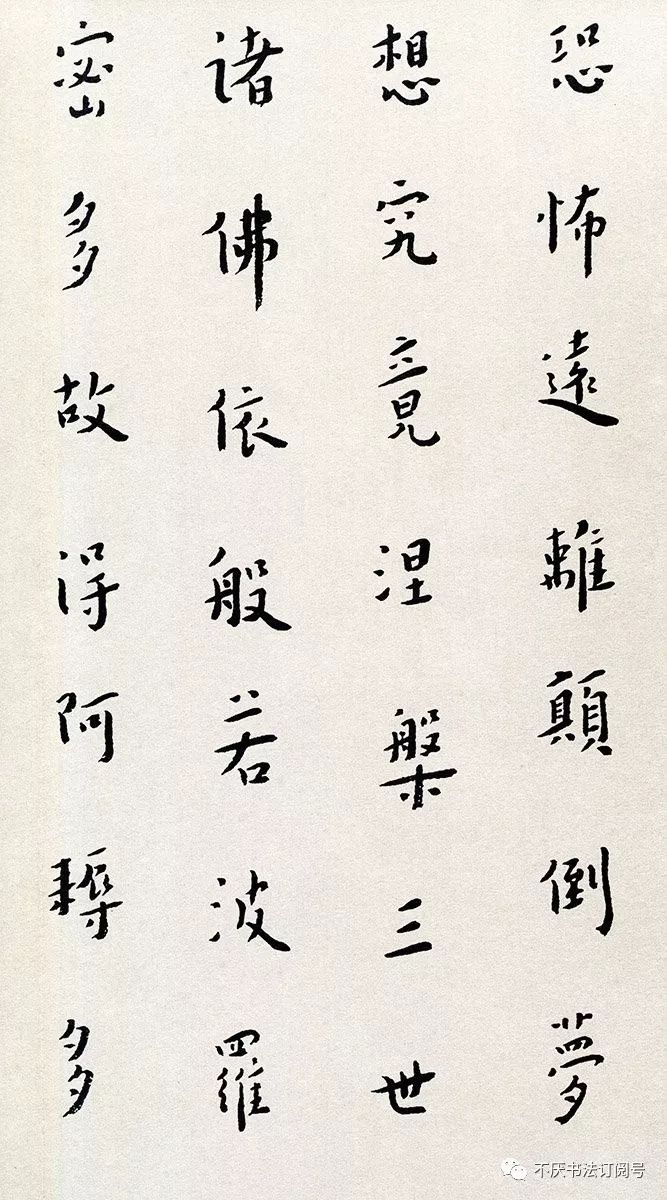 恐怖遠離顛倒夢
想究竟涅槃三世
諸佛依般若波羅
密多故得阿耨多
不厌书法订阅号